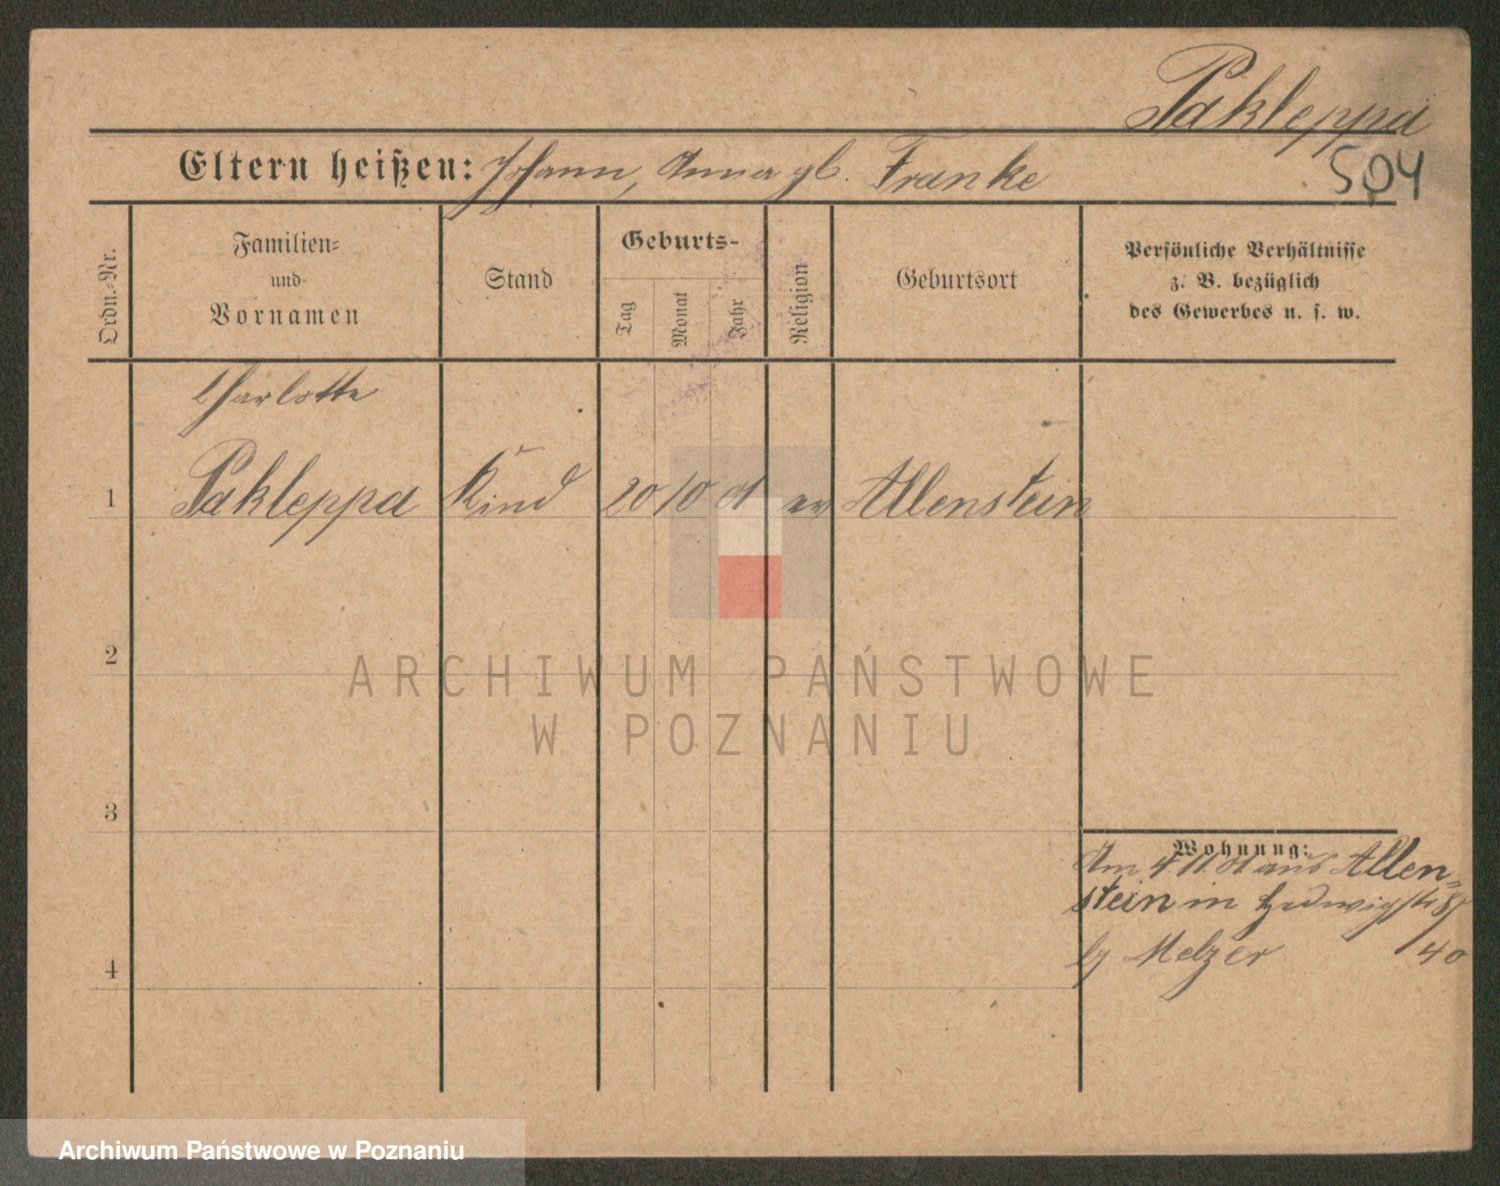 Pakleppa
Eltern heißen: Johann, Anna gb. Franke
504
Ordn.-Nr.
Familien-
und
Vornamen
Stand
Geburts-
Tag
Monat
Jahr
Religion
Geburtsort
Persönliche Verhältnisse
z. B. bezüglich
des Gewerbes u. s. w.
Charlotte
1 Pakleppa Kind 20 10 01 ev Allenstein
2
ARCHIWUM PAŃSTWOWE
W POZNANIU
3
Wohnung:
Am 4 11. 01 aus Allen-
stein in Hedwigstr
4
Melzer 40
Archiwum Państwowe w Poznaniu